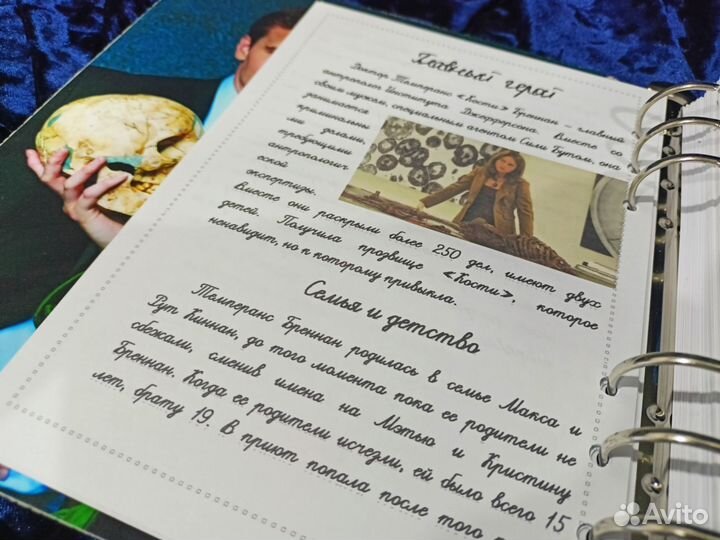 Главный герой
Доктор Темперанс «Кости» Бреннан – главный
антрополог Института Джефферсона. Вместе со
своим мужем, специальным агентом Сили Бутом, она
занимается
криминальны
ми делами,
требующими
антропологич
еской
экспертизы.
Вместе они раскрыли более 250 дел, имеют двух
детей. Получила прозвище «Кости», которое
ненавидит, но к которому привыкла.
Семья и детство
Темперанс Бреннан родилась в семье Макса и
Рут Киннан, до того момента пока ее родители не
сбежали, сменив имена на Мэтью и Кристину
Бреннан. Когда ее родители исчезли, ей было всего 15
лет, брату 19. В приют попала после того
Avito